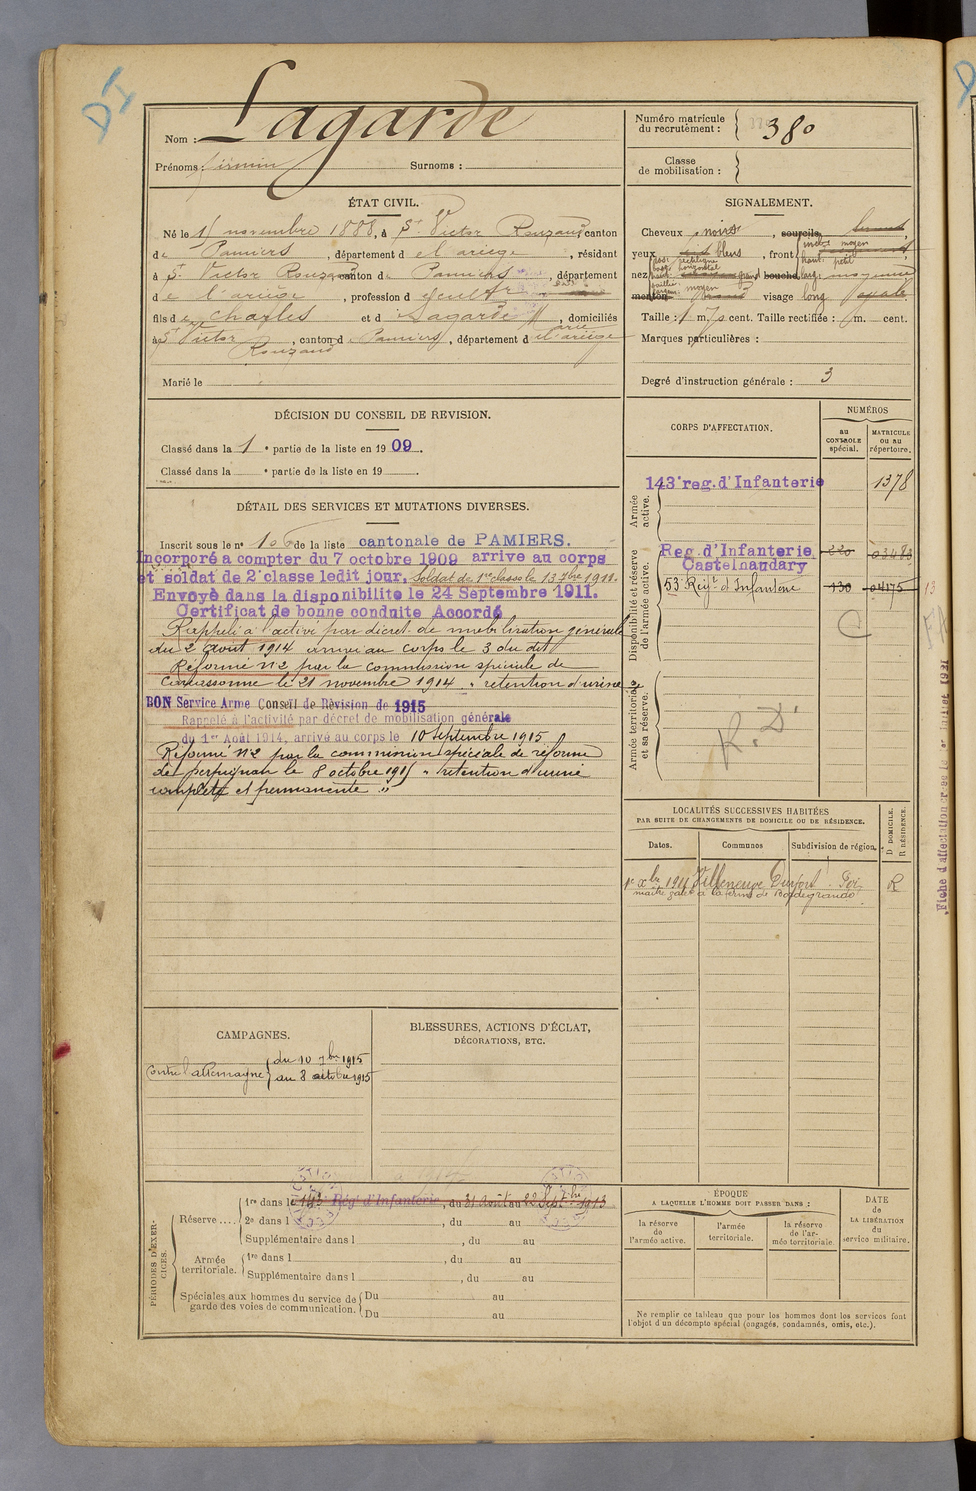 DI
Nom : Lagarde
Prénoms : Firmin Surnoms :
Numéro matricule du recrutement : 380
Classe de mobilisation :
ÉTAT CIVIL.
Né le 15 novembre 1888, à St Victor Rouzaud canton
de Pamiers, département de l'ariège, résidant
à St Victor Rouzaud canton de Pamiers, département
de l'ariège, profession d
fils de Charles et d Lagarde Marie, domiciliés
à St Victor Rouzaud, canton de Pamiers, département de l'ariège
Marié le
SIGNALEMENT.
Cheveux noirs, sourcils
yeux bleus, front inclon moyen haut: petit
nez dos: rectiligne base: horizontal bouche, larg: moyenne
menton visage long ovale
Taille : 1 m. 70 cent. Taille rectifiée : m. cent.
Marques particulières :
Degré d'instruction générale : 3
DÉCISION DU CONSEIL DE REVISION.
Classé dans la 1e partie de la liste en 1909.
Classé dans la e partie de la liste en 19 .
DÉTAIL DES SERVICES ET MUTATIONS DIVERSES.
Inscrit sous le n° 106 de la liste cantonale de PAMIERS.
Incorporé a compter du 7 octobre 1909 arrive au corps
et soldat de 2e classe ledit jour. Soldat de 1re classe le 13 7bre 1911.
Envoyé dans la disponibilite le 24 Septembre 1911.
Certificat de bonne conduite Accordé
Rappelé à l'activé par décret de mobilisation générale
du 2 août 1914 arrivé au corps le 3 du dit
Réformé n°2 par la commission spéciale de
Carcassonne le 21 novembre 1914 "rétention d'urine"
BON Service Armé Conseil de Révision de 1915
Rappelé à l'activité par décret de mobilisation générale
du 1er Août 1914, arrivé au corps le 10 Septembre 1915
Réformé n°2 par la commission spéciale de réforme
de perpignan le 8 octobre 1915 "rétention d'urine
complète et permanente"
CORPS D'AFFECTATION.
NUMÉROS
au CONTROLE spécial.
MATRICULE ou au répertoire.
Armée active.
143e reg. d'Infanterie 1378
Disponibilité et réserve de l'armée active.
Reg. d'Infanterie, Castelnaudary 220 03483
53e Régt d'Infanterie 130 04175
C
Armée territoriale et sa réserve.
R.D.
LOCALITÉS SUCCESSIVES HABITÉES
PAR SUITE DE CHANGEMENTS DE DOMICILE OU DE RÉSIDENCE.
Dates. Communes Subdivision de région. D DOMICILE. R RÉSIDENCE.
1er Xbre 1911 Villeneuve Durfort Foix R
CAMPAGNES.
Contre l'allemagne du 10 7bre 1915
au 8 octobre 1915
BLESSURES, ACTIONS D'ÉCLAT,
DÉCORATIONS, ETC.
PÉRIODES D'EXERCICES.
Réserve .... 1re dans le 143e Rég' d'Infanterie, du 31 août au 22 Septbre 1913
2e dans l , du au
Supplémentaire dans l , du au
Armée territoriale. 1re dans l , du au
Supplémentaire dans l , du au
Spéciales aux hommes du service de garde des voies de communication. Du au
Du au
ÉPOQUE
A LAQUELLE L'HOMME DOIT PASSER DANS :
la réserve de l'armée active.
l'armée territoriale.
la réserve de l'armée territoriale.
DATE de LA LIBÉRATION du service militaire.
Ne remplir ce tableau que pour les hommes dont les services font
l'objet d'un décompte spécial (engagés, condamnés, omis, etc.).